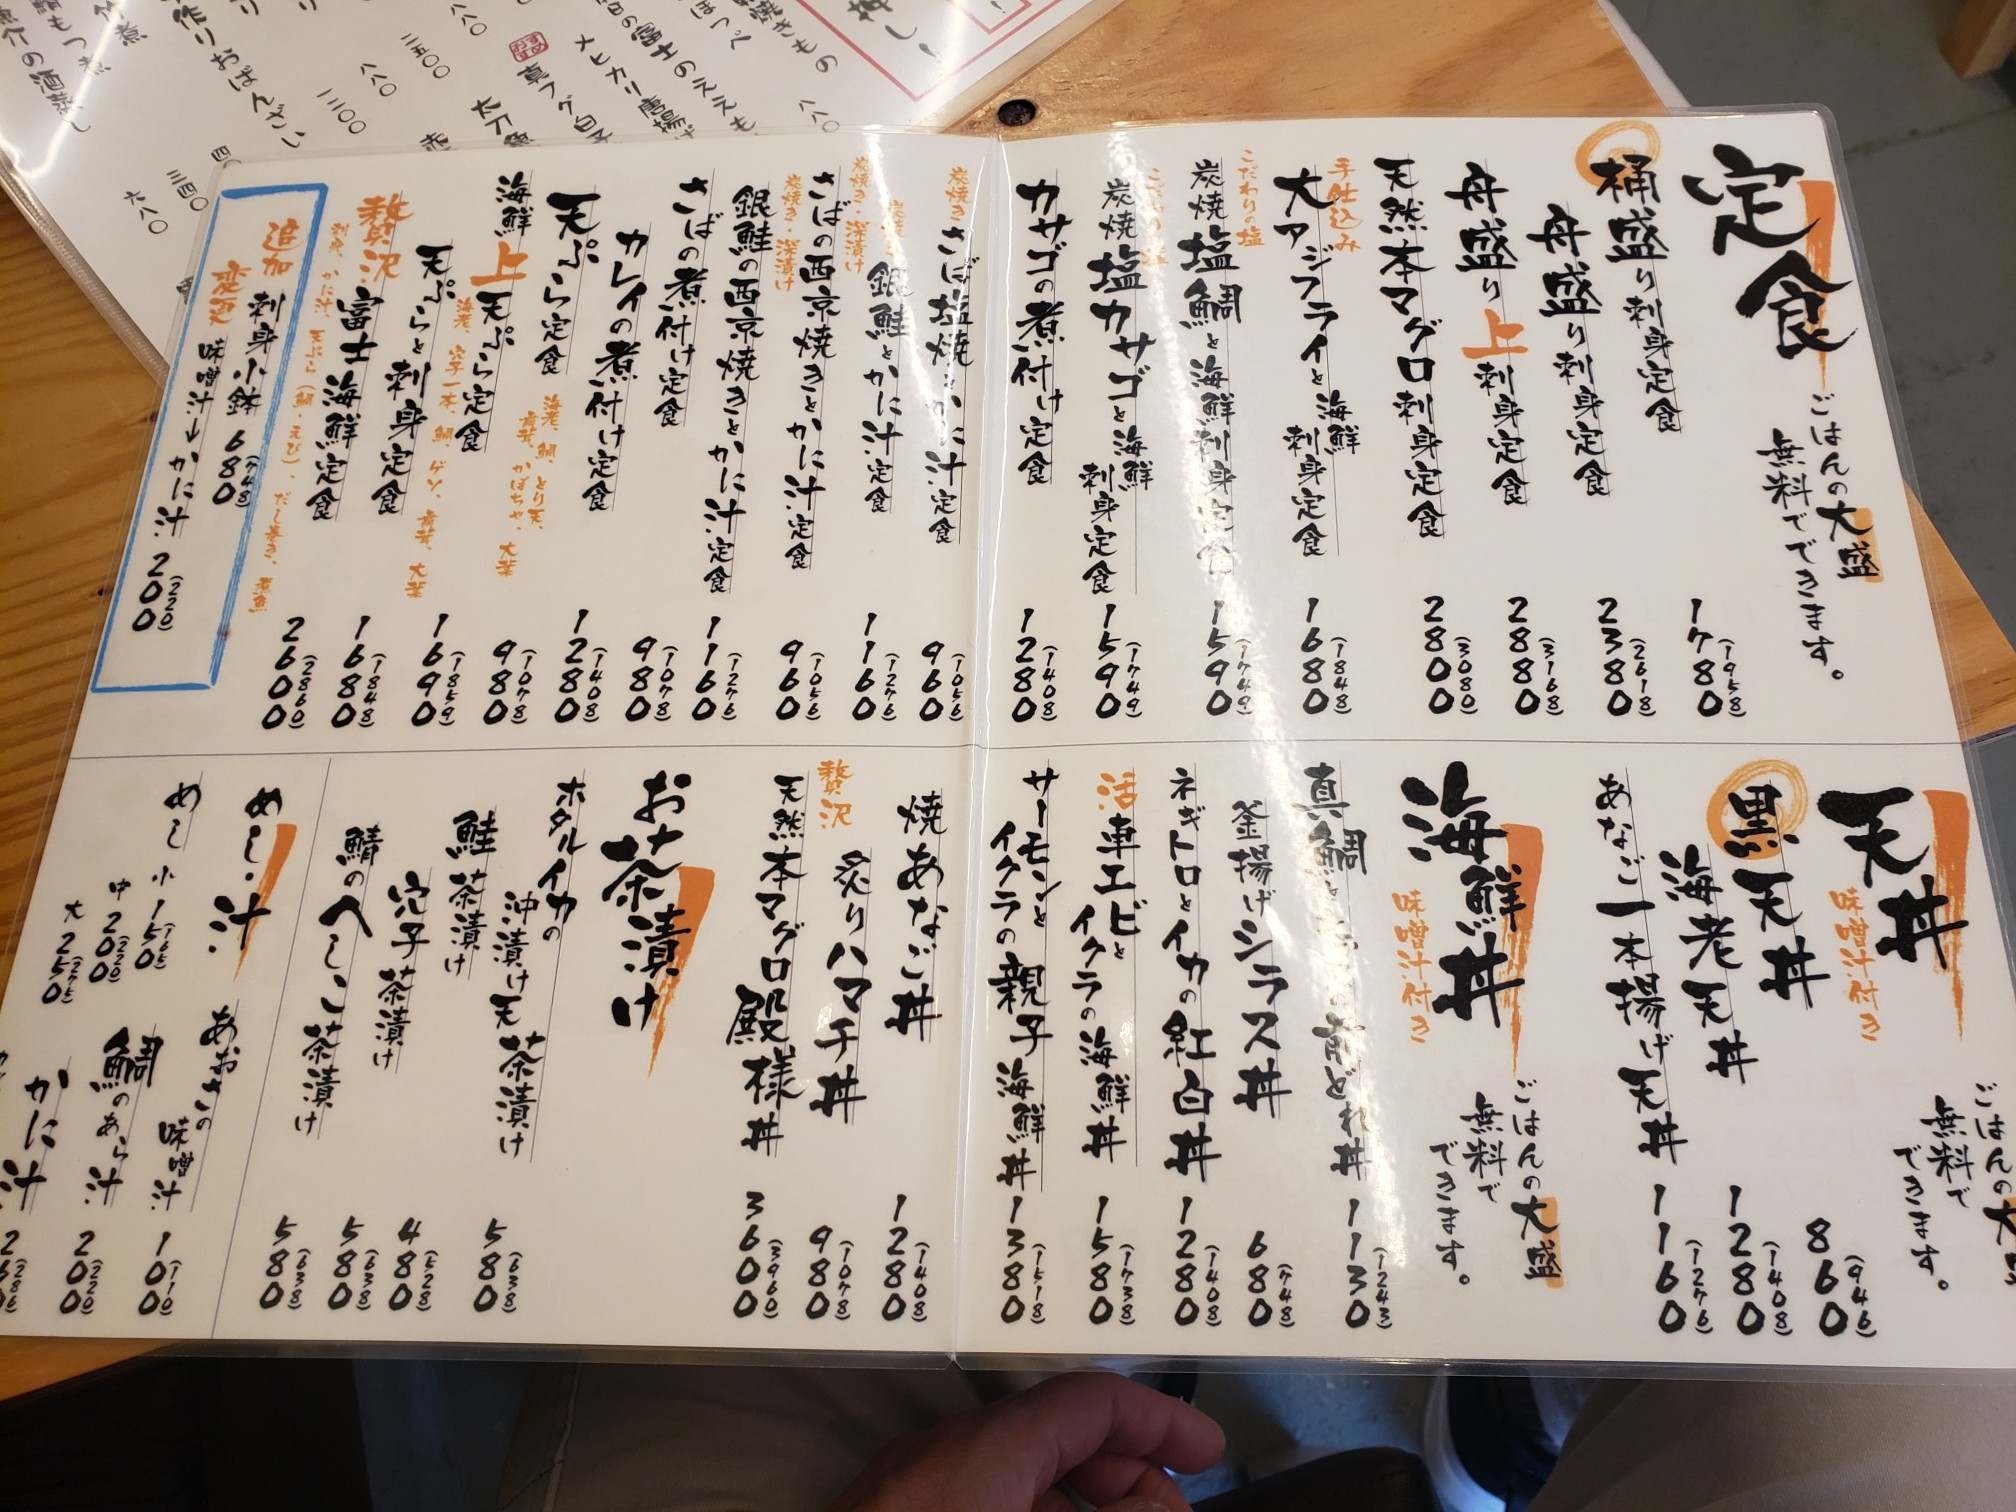 定食
ごはんの大盛
無料でできます。
桶盛り刺身定食
1780(1958)
舟盛り刺身定食
2380(2618)
舟盛り上刺身定食
2880(3168)
天然本マグロ刺身定食
2800(3080)
手仕込み
大アジフライと海鮮刺身定食
1680(1848)
こだわりの塩
炭焼塩鯛と海鮮刺身定食
1590(1749)
こだわりの塩
炭焼塩カサゴと海鮮刺身定食
1590(1749)
カサゴの煮付け定食
1280(1408)
炭焼き
さば塩焼とかに汁定食
960(1056)
炭焼き
銀鮭とかに汁定食
1160(1276)
炭焼き・深漬け
さばの西京焼きとかに汁定食
960(1056)
炭焼き・深漬け
銀鮭の西京焼きとかに汁定食
1160(1276)
さばの煮付け定食
980(1078)
カレイの煮付け定食
1280(1408)
天ぷら定食
海老、鯛、とり天、
舞茸、かぼちゃ、大葉
980(1078)
海鮮上天ぷら定食
海老、穴子一本、鯛、ゲソ、舞茸、大葉
1690(1859)
天ぷらと刺身定食
1680(1848)
贅沢
富士海鮮定食
刺身、かに汁、天ぷら(鯛・えび)、だし巻き、煮魚
2600(2860)
追加
刺身小鉢 680(748)
変更
味噌汁→かに汁 200(220)
天丼
味噌汁付き
ごはんの大盛
無料で
できます。
黒天丼
860(946)
海老天丼
1280(1408)
あなご一本揚げ天丼
1160(1276)
海鮮丼
味噌汁付き
ごはんの大盛
無料で
できます。
真鯛と
前どれ丼
1130(1243)
釜揚げシラス丼
680(748)
ネギトロとイカの紅白丼
1280(1408)
活車エビと
イクラの海鮮丼
1580(1738)
サーモンと
イクラの親子海鮮丼
1380(1518)
焼あなご丼
1280(1408)
炙りハマチ丼
980(1078)
贅沢
天然本マグロ殿様丼
3600(3960)
お茶漬け
ホタルイカの
沖漬け天茶漬け
580(638)
鮭茶漬け
480(528)
穴子茶漬け
580(638)
鯖のへしこ茶漬け
580(638)
めし・汁
めし 小150(165)
中200(220)
大250(275)
あおさの
味噌汁
100(110)
鯛のあら汁
200(220)
かに汁
押し!
焼きもの
八八〇
富士のええも
メヒカリ唐揚げ
おすすめ
真フグ白子
太刀魚
八八〇
二五〇〇
八八〇
一二〇〇
作りおばんざい
三四〇
六八〇
魚介の酒蒸し
鯛もつ煮